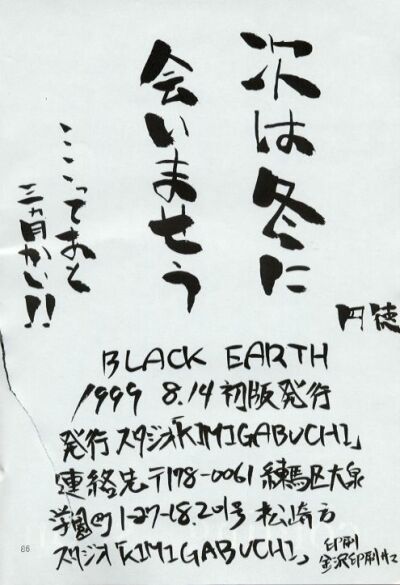 次は冬に
会いませう
ここってあと
三ヵ月かい!!
円徳
BLACK EARTH
1999 8.14 初版発行
発行 スタジオ「KIMIGABUCHI」
連絡先 〒178-0061 練馬区大泉
学園町 1-27-18.201号 松崎方
スタジオ「KIMIGABUCHI」
印刷
金沢印刷
86